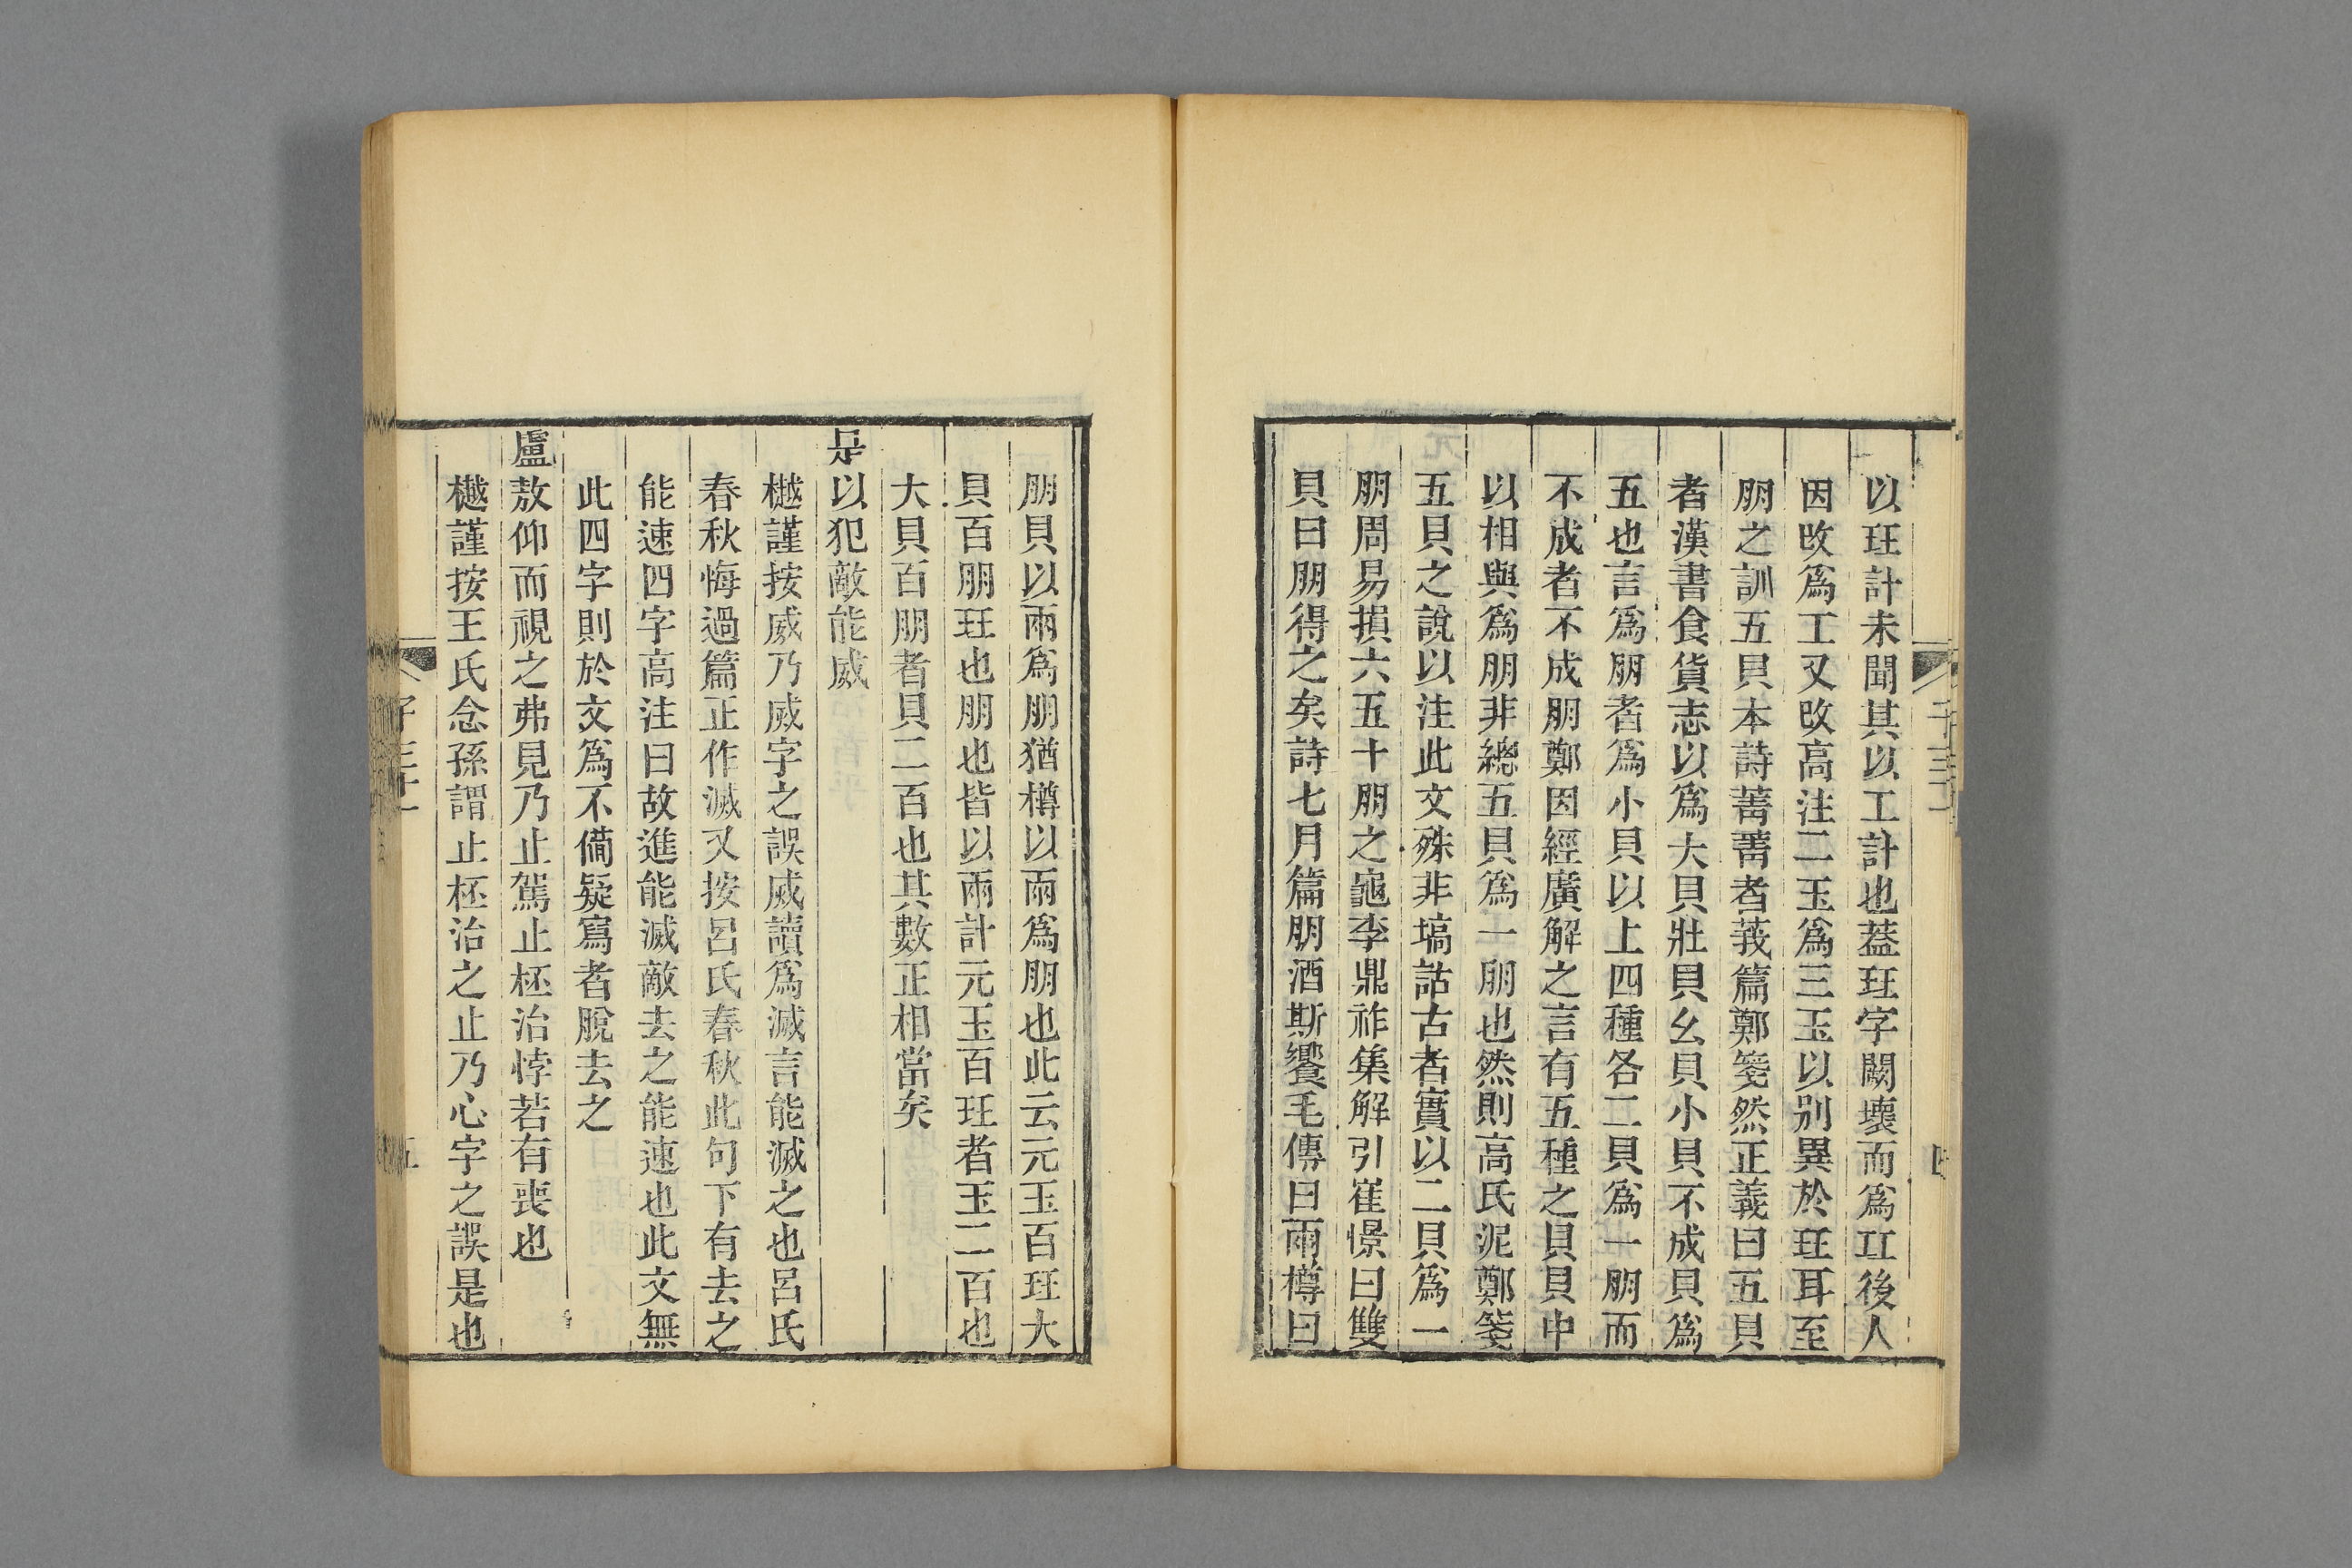 以玨計未聞其以工計也葢玨字闕壞而爲㠭後人
因改爲工又改高注二玉爲三玉以别異於玨耳至
朋之訓五貝本詩菁菁者莪篇鄭箋然正義曰五貝
者漢書食貨志以爲大貝壯貝幺貝小貝不成貝爲
五也言爲朋者爲小貝以上四種各二貝爲一朋而
不成者不成朋鄭因經廣解之言有五種之貝貝中
以相與爲朋非總五貝爲一朋也然則高氏泥鄭箋
五貝之說以注此文殊非塙詁古者實以二貝爲一
朋周易損六五十朋之龜李鼎祚集解引崔憬曰雙
貝曰朋得之矣詩七月篇朋酒斯饗毛傳曰兩樽曰
朋貝以兩爲朋猶樽以兩爲朋也此云元玉百玨大
貝百朋玨也朋也皆以兩計元玉百玨者玉二百也
大貝百朋者貝二百也其數正相當矣
是以犯敵能威
樾謹按威乃烕字之誤烕讀爲滅言能滅之也呂氏
春秋悔過篇正作滅又按呂氏春秋此句下有去之
能速四字高注曰故進能滅敵去之能速也此文無
此四字則於文爲不備疑寫者脫去之
盧敖仰而視之弗見乃止駕止柸治悖若有喪也
樾謹按王氏念孫謂止柸治之止乃心字之誤是也
子三十一
五